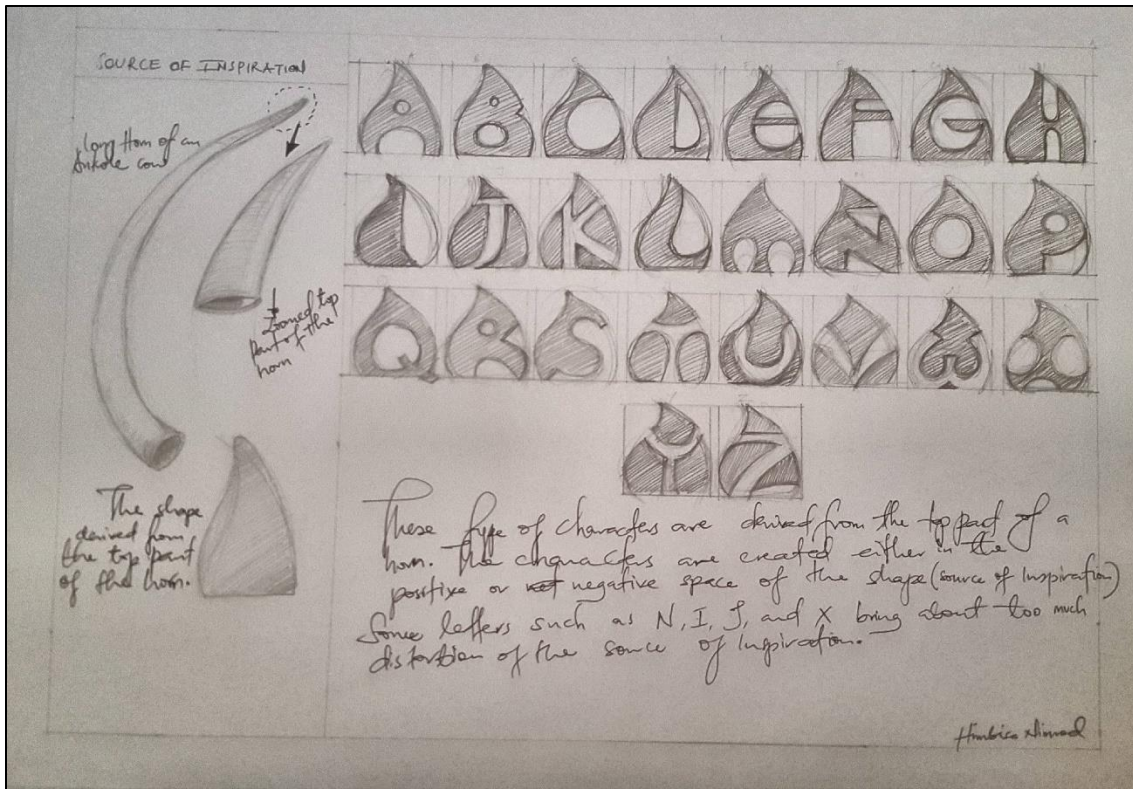 SOURCE OF INSPIRATION
long Horn of an
Ankole cow
Zoomed top
part of the
horn
The shape
derived from
the top part
of the horn.
A B C D E F G H
I J K L M N O P
Q R S T U V W X
Y Z
These type of characters are derived from the top part of a
horn. The characters are created either in the
positive or negative space of the shape (source of Inspiration)
Some letters such as N, I, J, and X bring about too much
distortion of the source of Inspiration.